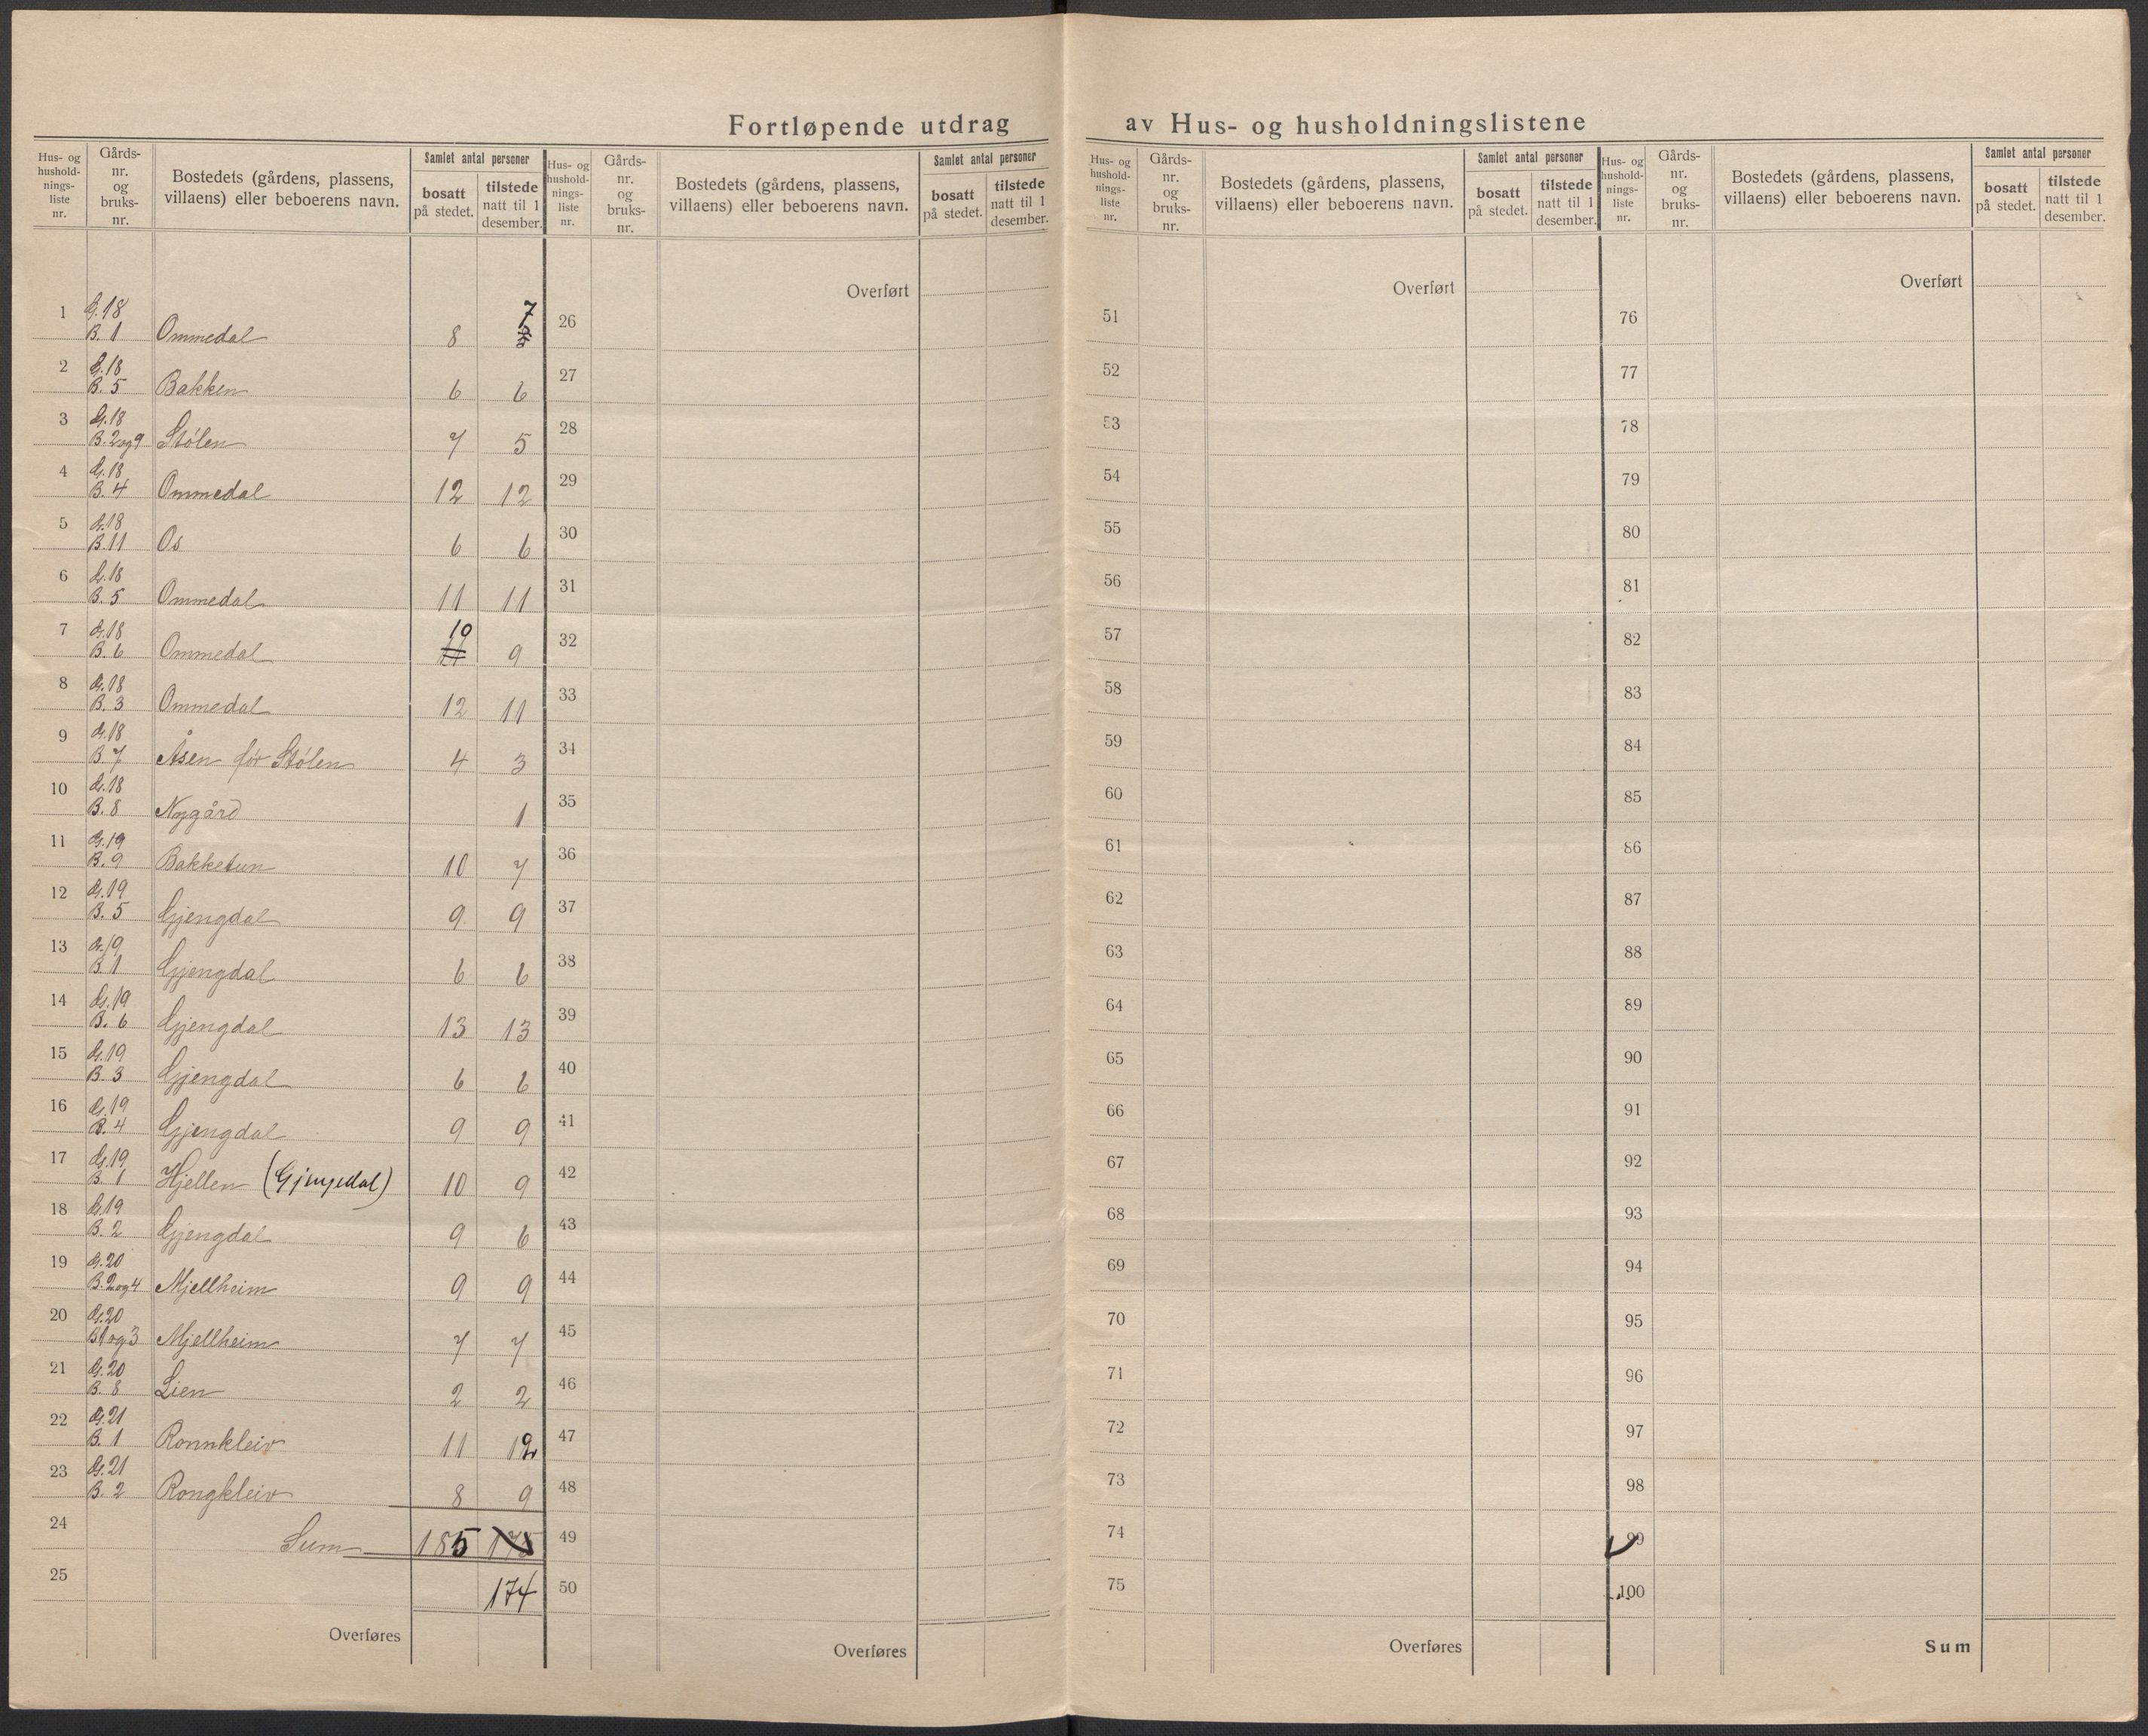 Fortløpende utdrag av Hus- og husholdningslistene
Hus- og hushold-nings-liste nr. Gårds-nr. og bruks-nr. Bostedets (gårdens, plassens, villaens) eller beboerens navn. Samlet antal personer bosatt på stedet. tilstede natt til 1 desember.
Hus- og hushold-nings-liste nr. Gårds-nr. og bruks-nr. Bostedets (gårdens, plassens, villaens) eller beboerens navn. Samlet antal personer bosatt på stedet. tilstede natt til 1 desember.
Hus- og hushold-nings-liste nr. Gårds-nr. og bruks-nr. Bostedets (gårdens, plassens, villaens) eller beboerens navn. Samlet antal personer bosatt på stedet. tilstede natt til 1 desember.
Hus- og hushold-nings-liste nr. Gårds-nr. og bruks-nr. Bostedets (gårdens, plassens, villaens) eller beboerens navn. Samlet antal personer bosatt på stedet. tilstede natt til 1 desember.
1 G.18 B. 1 Ommedal 8 7
2 G.18 B. 5 Bakken 6 6
3 G.18 B. 2 og 9 Stølen 7 5
4 G.18 B. 4 Ommedal 12 12
5 G.18 B. 11 Os 6 6
6 G.18 B. 5 Ommedal 11 11
7 G.18 B. 6 Ommedal 10 11 9
8 G.18 B. 3 Ommedal 12 11
9 G.18 B. 7 Åsen før Stølen 4 3
10 G.18 B. 8 Nygård 1
11 G.19 B. 9 Bakketun 10 7
12 G.19 B. 5 Gjengdal 9 9
13 G.19 B. 1 Gjengdal 6 6
14 G.19 B. 6 Gjengdal 13 13
15 G.19 B. 3 Gjengdal 6 6
16 G.19 B. 4 Gjengdal 9 9
17 G.19 B. 1 Hjellen (Gjengedal) 10 9
18 G.19 B. 2 Gjengdal 9 6
19 G.20 B. 2 og 4 Mjellheim 9 9
20 G.20 B. 1 og 3 Mjellheim 7 7
21 G.20 B. 8 Lien 2 2
22 G.21 B. 1 Ronnkleiv 11 12
23 G.21 B. 2 Rongkleiv 8 9
24 Sum 185 175
25 174
Overføres
Overført
26
27
28
29
30
31
32
33
34
35
36
37
38
39
40
41
42
43
44
45
46
47
48
49
50
Overføres
Overført
51
52
53
54
55
56
57
58
59
60
61
62
63
64
65
66
67
68
69
70
71
72
73
74
75
Overføres
Overført
76
77
78
79
80
81
82
83
84
85
86
87
88
89
90
91
92
93
94
95
96
97
98
99
100
Sum